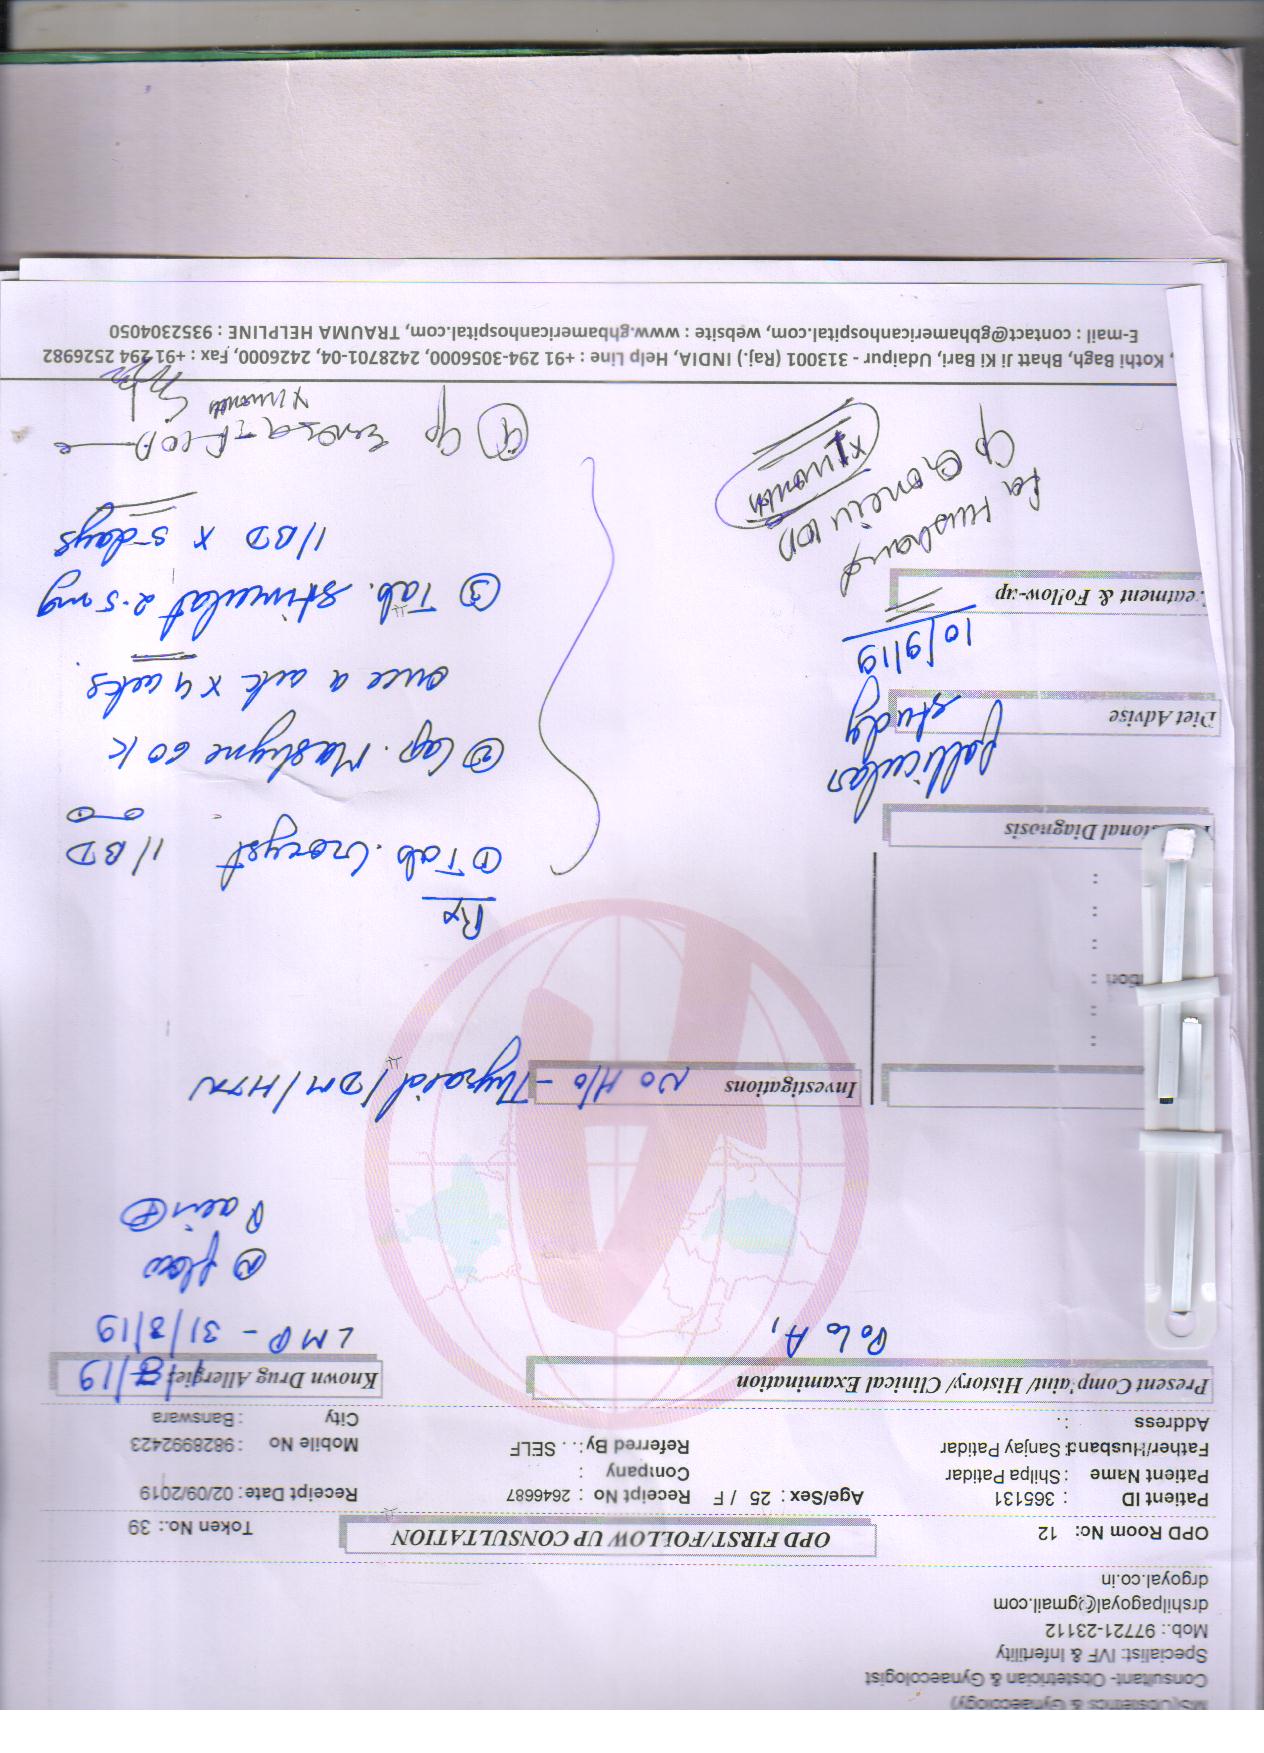 MS(Obstetrics & Gynaecology)
Consultant- Obstetrician & Gynaecologist
Specialist: IVF & Infertility
Mob.: 97721-23112
drshilpagoyal@gmail.com
drgoyal.co.in
OPD Room No: 12 OPD FIRST/FOLLOW UP CONSULTATION Token No.: 39
Patient ID : 365131 Age/Sex : 25 / F Receipt No : 2646687 Receipt Date : 02/09/2019
Patient Name : Shilpa Patidar Company :
Father/Husband : Sanjay Patidar Referred By : . . SELF Mobile No : 9828992423
Address : . City : Banswara
Present Complaint/ History/ Clinical Examination Known Drug Allergies
P0L0A1
LMP - 31/8/19
flow
Pain +
Investigations No H/o - Thyroid / DM / HTN
Rx
① Tab. 1/BD
② Cap. 60 K
once a wk x 4 wks.
③ Tab. 2.5mg
1/BD x 5 days
④ Cap
x 1 month
Diagnosis
follicular
study
Diet Advise
10/9/19
Treatment & Follow-up
for Husband
Cap
x 1 month
, Kothi Bagh, Bhatt Ji Ki Bari, Udaipur - 313001 (Raj.) INDIA, Help Line : +91 294-3056000, 2428701-04, 2426000, Fax : +91 294 2526982
E-mail : contact@gbhamericanhospital.com, website : www.gbhamericanhospital.com, TRAUMA HELPLINE : 9352304050